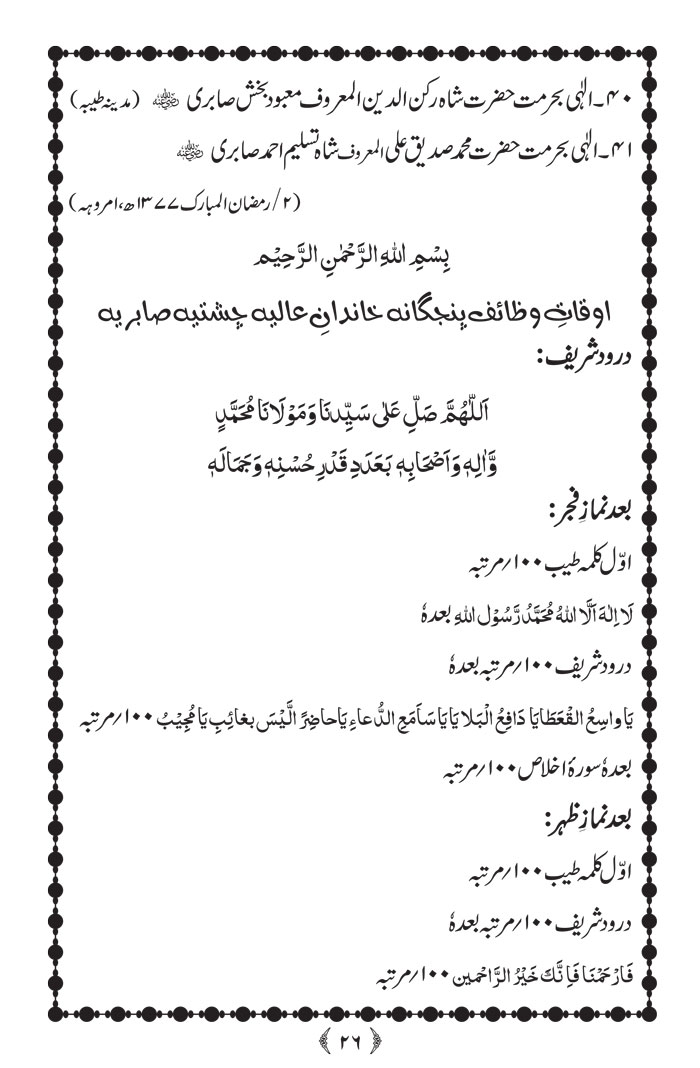 ۴۰۔الٰہی بحرمت حضرت شاہ رکن الدین المعروف معبود بخش صابری رضی اللہ عنہ (مدینہ طیبہ)
۴۱۔الٰہی بحرمت حضرت محمد صدیق علی المعروف شاہ تسلیم احمد صابری رضی اللہ عنہ
(۲/رمضان المبارک ۱۳۷۷ھ، امروہہ)
بِسْمِ اللهِ الرَّحْمٰنِ الرَّحِيْمِ
اوقاتِ وظائف پنجگانہ خاندانِ عالیہ چشتیہ صابریہ
درود شریف:
اَللّٰهُمَّ صَلِّ عَلٰى سَيِّدِنَا وَمَوْلَانَا مُحَمَّدٍ
وَّاٰلِهٖ وَاَصْحَابِهٖ بَعَدَدِ قَدْرِ حُسْنِهٖ وَجَمَالَهٖ
بعد نمازِ فجر:
اوّل کلمہ طیب ۱۰۰/مرتبہ
لَا اِلٰهَ اَلَّا اللهُ مُحَمَّدُ رَّسُوْل اللهِ بعدہٗ
درود شریف ۱۰۰/مرتبہ بعدہٗ
يَا واسِعُ القْعَطَايَا دَافِعُ الْبَلَايَا يَا سَاَمَعِ الدُّعاءِ يَاحاضِرً الَّيْسَ بغائِبِ يَا مُجِيْبُ ۱۰۰/مرتبہ
بعدہٗ سورۂ اخلاص ۱۰۰/مرتبہ
بعد نمازِ ظہر:
اوّل کلمہ طیب ۱۰۰/مرتبہ
درود شریف ۱۰۰/مرتبہ بعدہٗ
فَارْحَمْنَا فَاِنَّكَ خَيْرُ الرَّاحْمين ۱۰۰/مرتبہ
﴿ ۲۶ ﴾